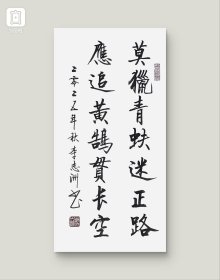 莫獵青蚨迷正路
應追黃鵠貫長空
二零二五年秋李志洲书